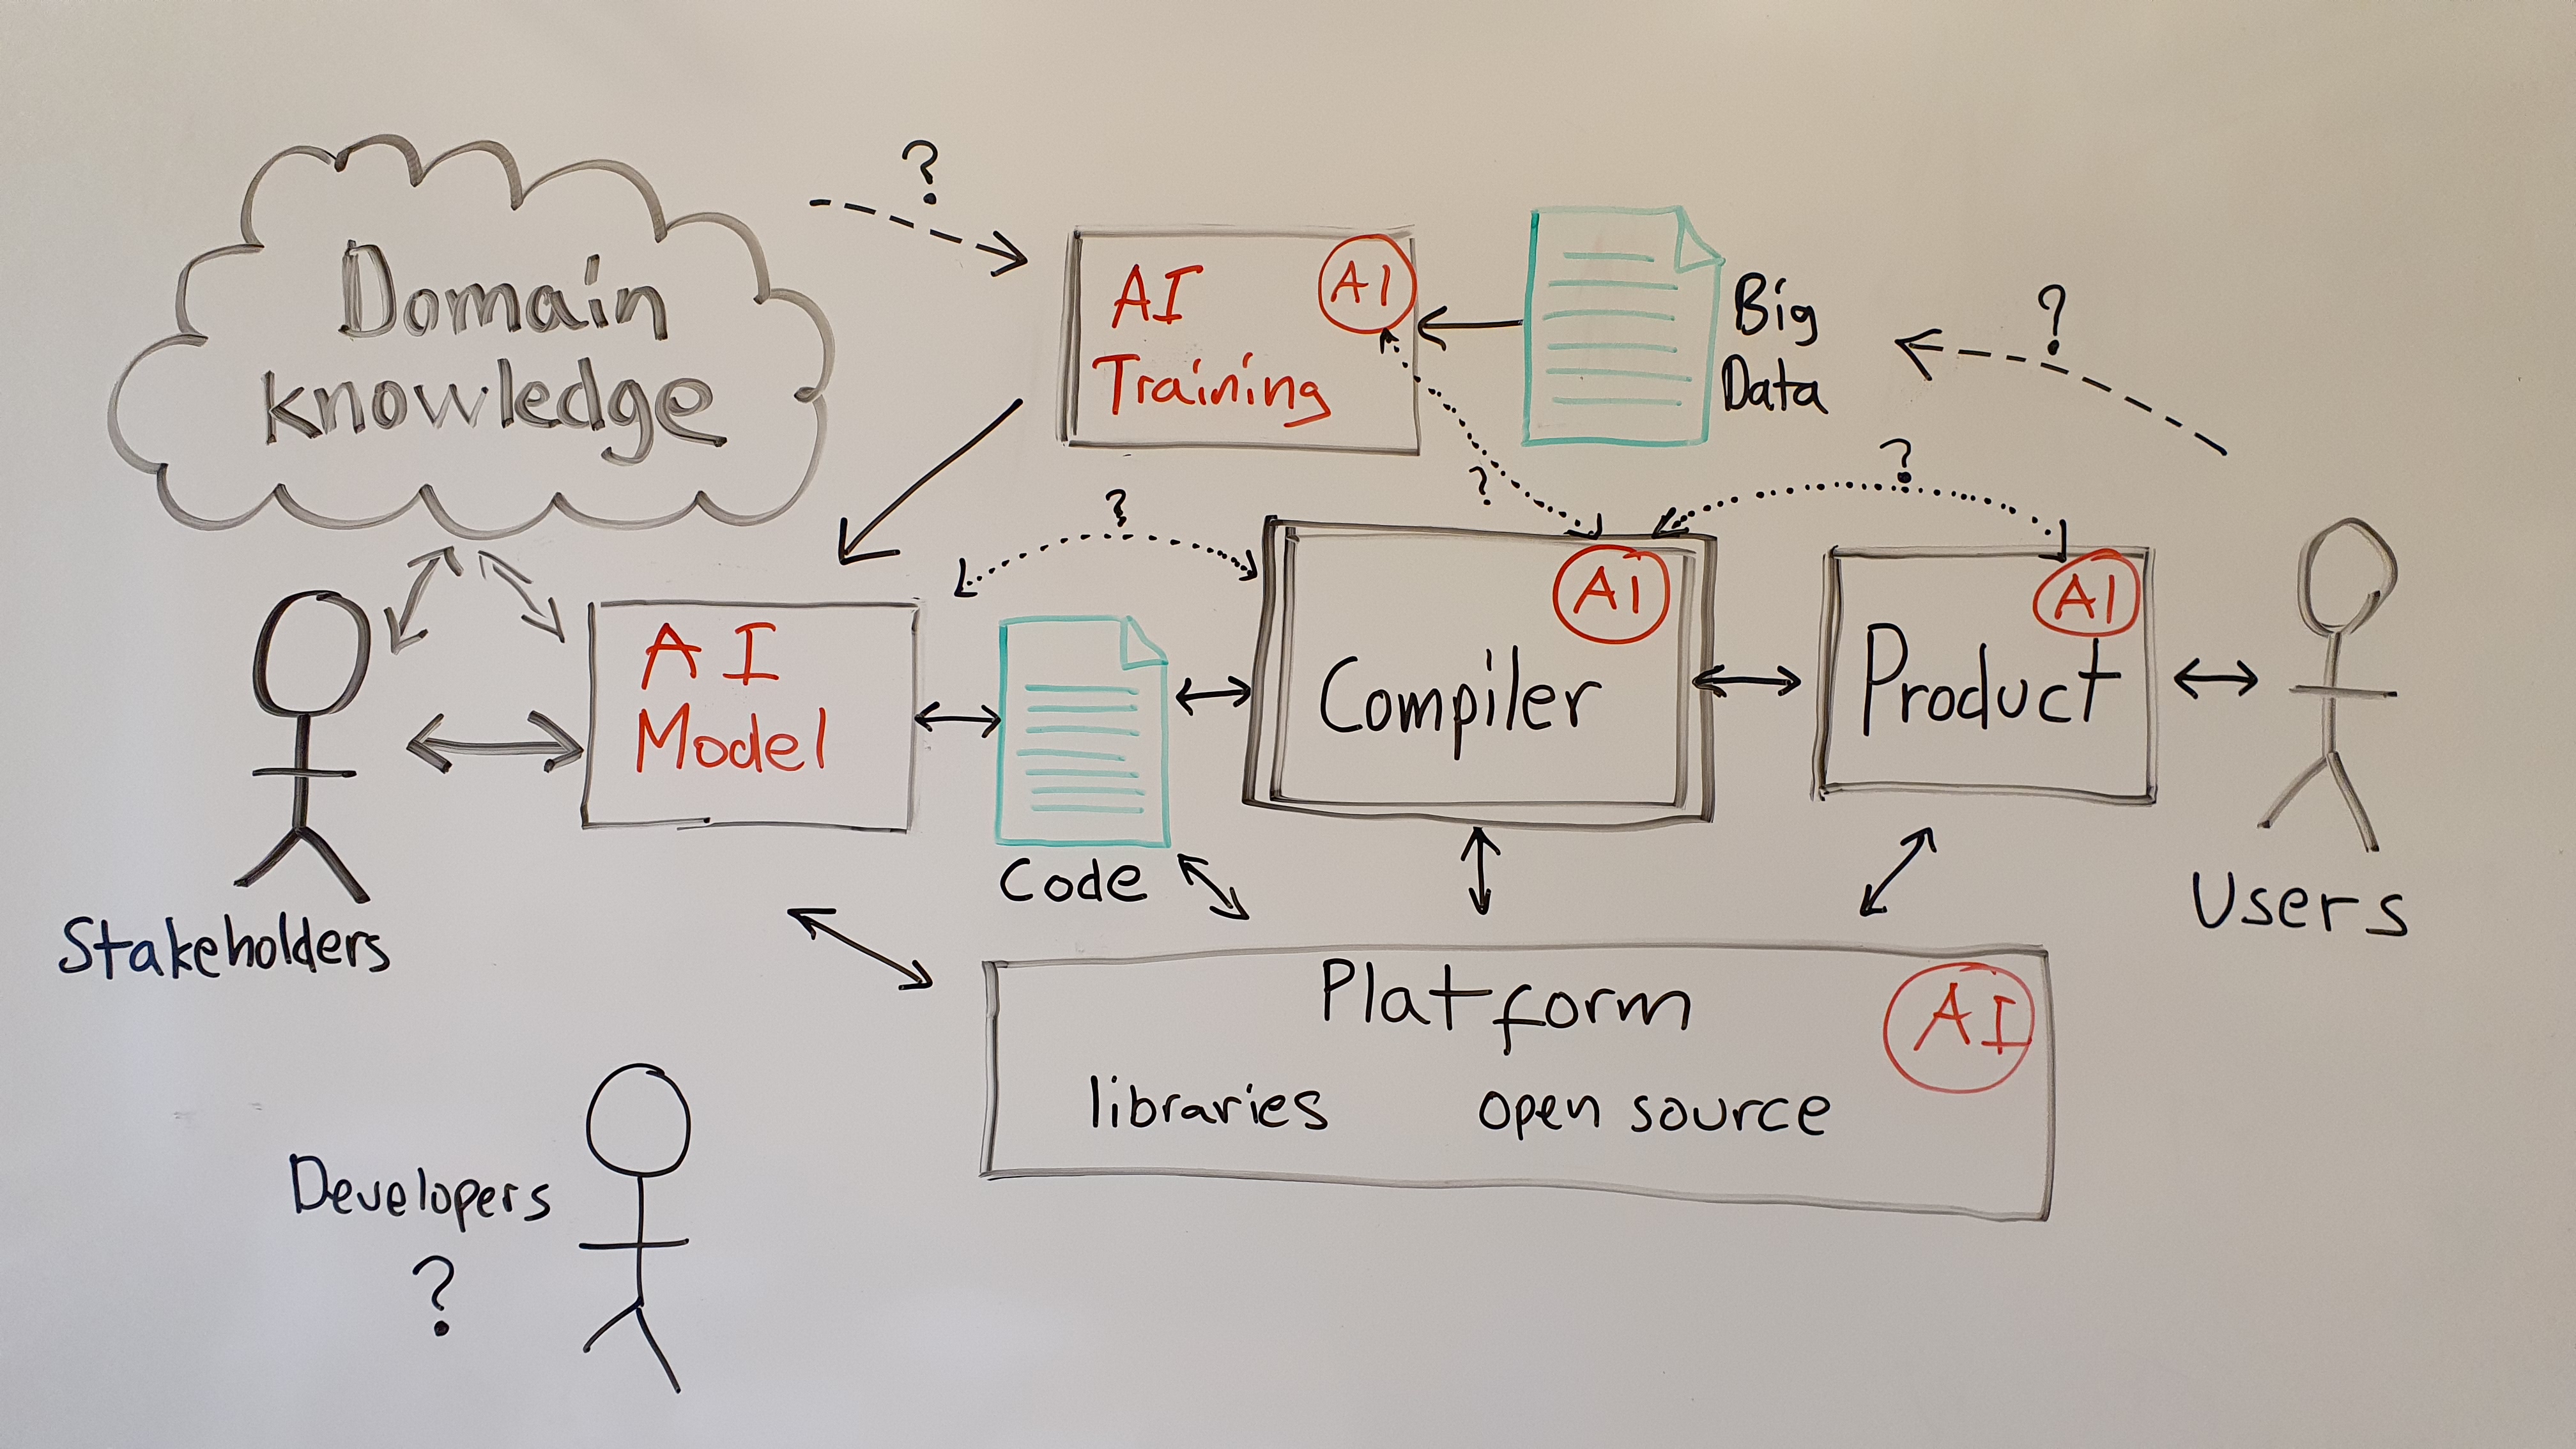 ?
Domain
knowledge
AI
Training
AI
Big
Data
?
?
?
?
AI
Model
Code
AI
Compiler
AI
Product
Stakeholders
Users
Platform
AI
libraries open source
Developers
?